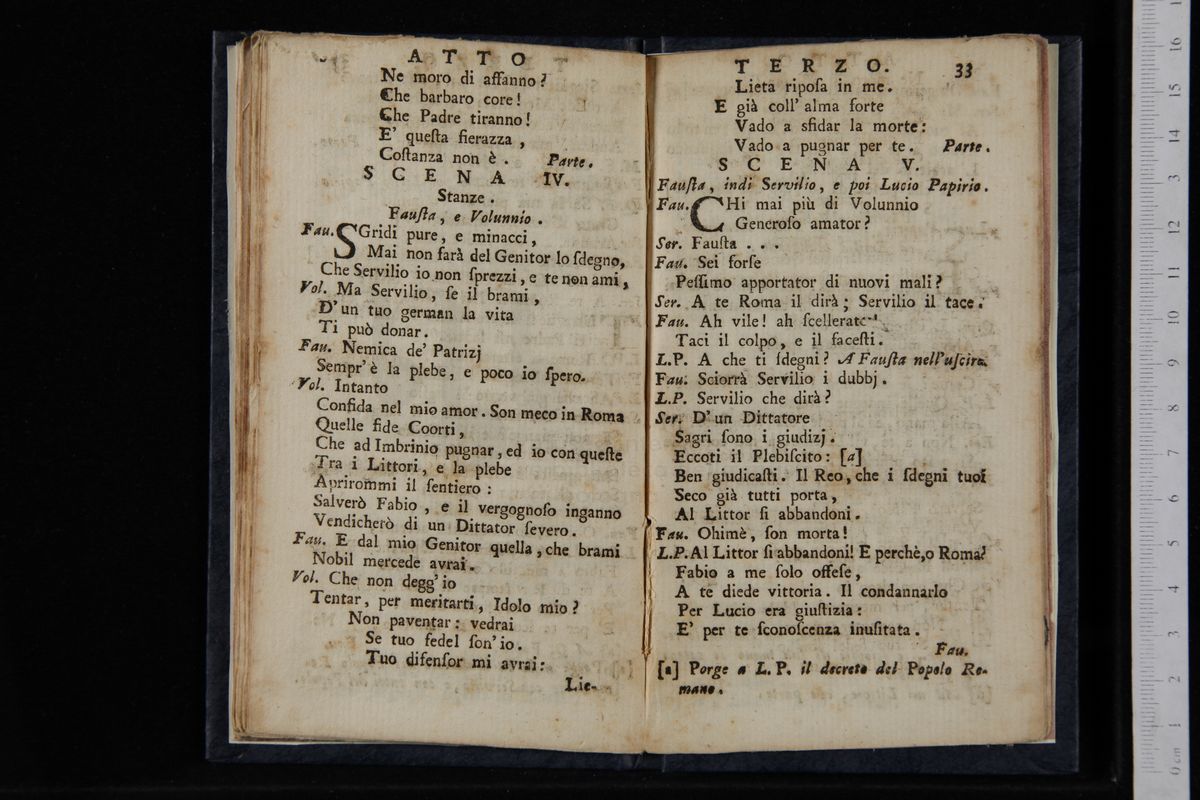 ATTO
Ne moro di affanno?
Che barbaro core!
Che Padre tiranno!
E' queſta fierazza,
Coſtanza non è. Parte.
SCENA IV.
Stanze.
Fauſta, e Volunnio.
Fau. SGridi pure, e minacci,
Mai non farà del Genitor lo ſdegno,
Che Servilio io non ſprezzi, e te non ami,
Vol. Ma Servilio, ſe il brami,
D'un tuo german la vita
Ti può donar.
Fau. Nemica de' Patrizj
Sempr'è la plebe, e poco io ſpero.
Vol. Intanto
Confida nel mio amor. Son meco in Roma
Quelle fide Coorti,
Che ad Imbrinio pugnar, ed io con queſte
Tra i Littori, e la plebe
Aprirommi il ſentiero:
Salverò Fabio, e il vergognoſo inganno
Vendicherò di un Dittator ſevero.
Fau. E dal mio Genitor quella, che brami
Nobil mercede avrai.
Vol. Che non degg'io
Tentar, per meritarti, Idolo mio?
Non paventar: vedrai
Se tuo fedel ſon'io.
Tuo difenſor mi avrai:
Lie-
TERZO. 33
Lieta ripoſa in me.
E già coll'alma forte
Vado a sfidar la morte:
Vado a pugnar per te. Parte.
SCENA V.
Fauſta, indi Servilio, e poi Lucio Papirio.
Fau. CHi mai più di Volunnio
Generoſo amator?
Ser. Fauſta . . .
Fau. Sei forſe
Peſſimo apportator di nuovi mali?
Ser. A te Roma il dirà; Servilio il tace.
Fau. Ah vile! ah
Taci il colpo, e il faceſti.
L.P. A che ti ſdegni? A Fauſta nell'uſcire.
Fau. Sciorrà Servilio i dubbj.
L.P. Servilio che dirà?
Ser. D'un Dittatore
Sagri ſono i giudizj.
Eccoti il Plebiſcito: [a]
Ben giudicaſti. Il Reo, che i ſdegni tuoi
Seco già tutti porta,
Al Littor ſi abbandoni.
Fau. Ohimè, ſon morta!
L.P. Al Littor ſi abbandoni! E perchè, o Roma?
Fabio a me ſolo offeſe,
A te diede vittoria. Il condannarlo
Per Lucio era giuſtizia:
E' per te ſconoſcenza inuſitata.
Fau.
[a] Porge a L. P. il decreto del Popolo Ro-
mano.